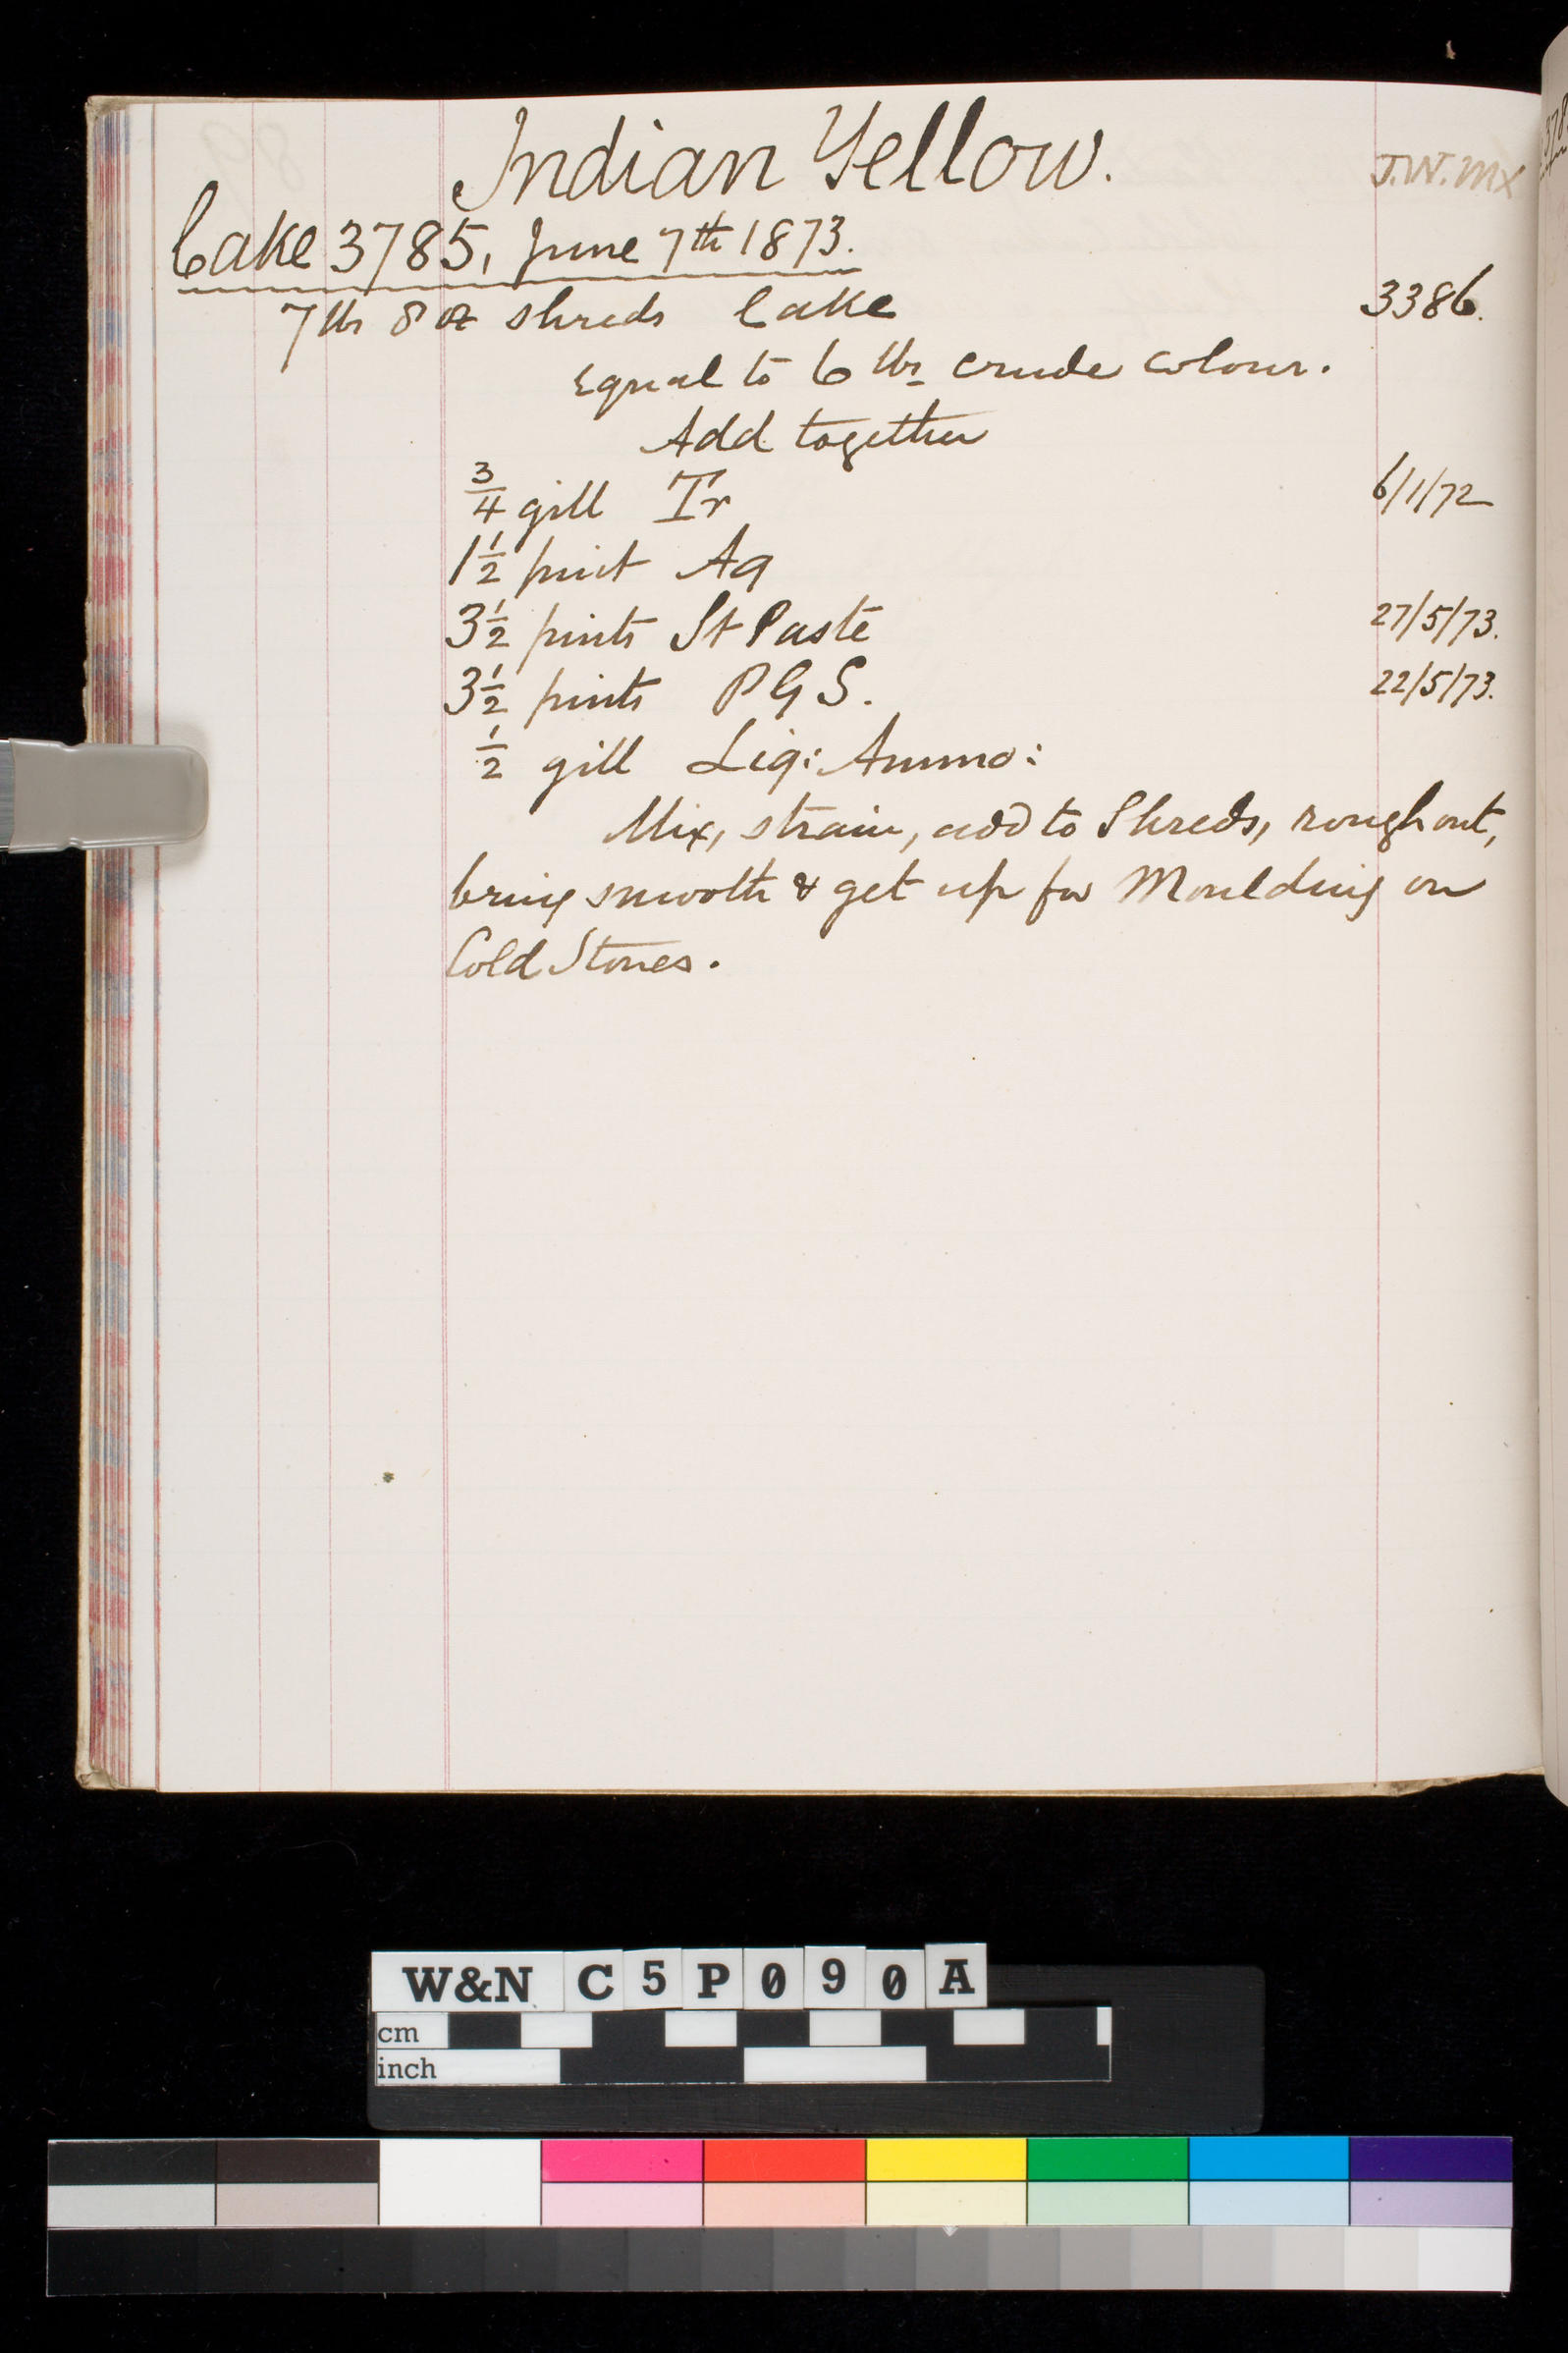 Indian Yellow.
J.W. Mx
Cake 3785, June 7th 1873.
7 lbs 8 oz shreds Cake 3386.
Equal to 6 lbs crude colour.
Add together
3/4 gill Tr 6/1/72
1 1/2 pint Aq
3 1/2 pints St Paste 27/5/73.
3 1/2 pints P G S. 22/5/73.
1/2 gill Liq: Ammo:
Mix, strain, add to Shreds, rough out,
bring smooth & get up for Moulding on
Cold Stones.
W&N C5P090A
cm
inch